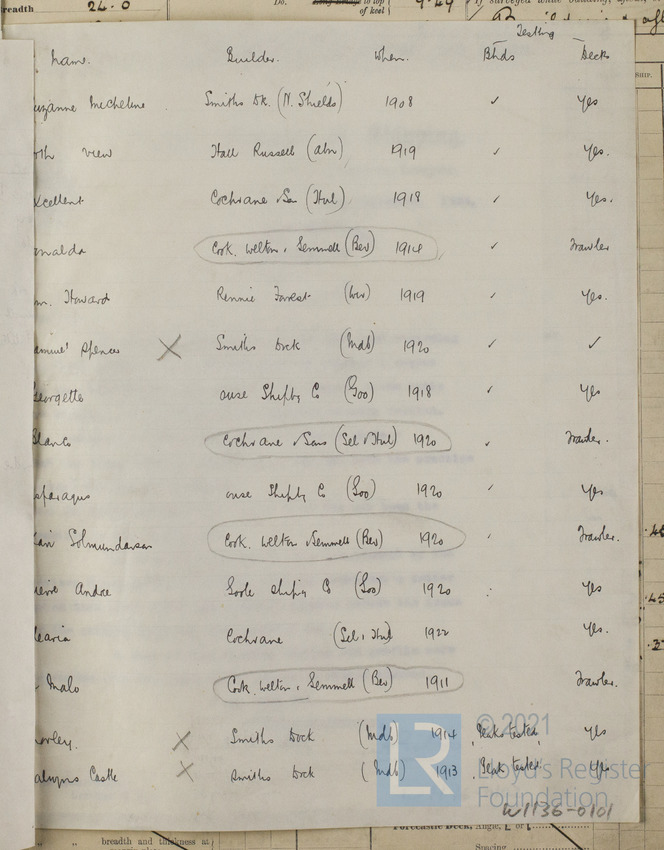 readth 24.0 Do. to top of keel 9.49
Testing
Name. Builder. When. Bhds Decks
uzanne Micheline Smiths Dk. (N. Shields) 1908 ✓ Yes
rth View Hall Russell (abn) 1919 ✓ Yes.
xcellent Cochrane & Son (Hul) 1918 ✓ Yes.
onalda Cook, Welton & Gemmell (Bev) 1914 ✓ Trawler
m. Howard Rennie Forrest (Wiv) 1919 ✓ Yes.
amuel Spencer X Smiths Dock (Mdb) 1920 ✓ ✓
Georgette Ouse Shipbg Co (Goo) 1918 ✓ Yes
Blanco Cochrane & Sons (Sel & Hul) 1920 ✓ Trawler.
sparagus Ouse Shipbg Co (Goo) 1920 ✓ Yes
Solmundarson Cook, Welton & Gemmell (Bev) 1920 Trawler.
ierre Andre Goole Shipbg Co (Goo) 1920 Yes
learia Cochrane (Sel & Hul) 1922 Yes.
Malo Cook, Welton & Gemmell (Bev) 1911 Trawler.
X Smiths Dock (Mdb) 1914 Peaks tested Yes
Castle X Smiths Dock (Mdb) 1913 Peak tested Yes
© 2021
LR Lloyd's Register
Foundation
W1136-0101
Forecastle Deck, Angle,
breadth and thickness at
Spacing